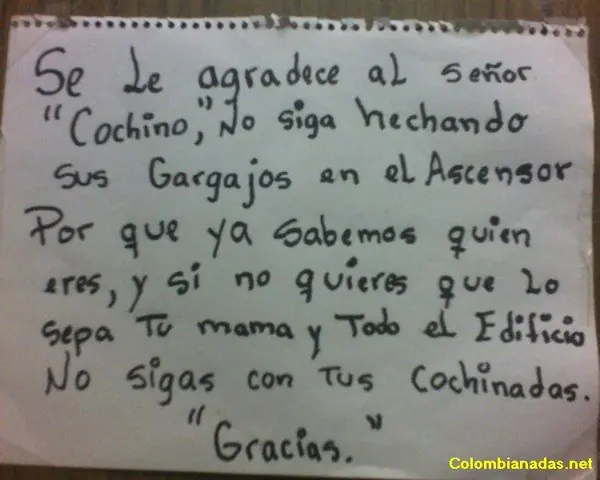 Se Le agradece al señor
"Cochino," No siga hechando
sus Gargajos en el Ascensor
Por que ya sabemos quien
eres, y si no quieres que Lo
sepa Tu mama y Todo el Edificio
No sigas con Tus Cochinadas.
"Gracias."
Colombianadas.net